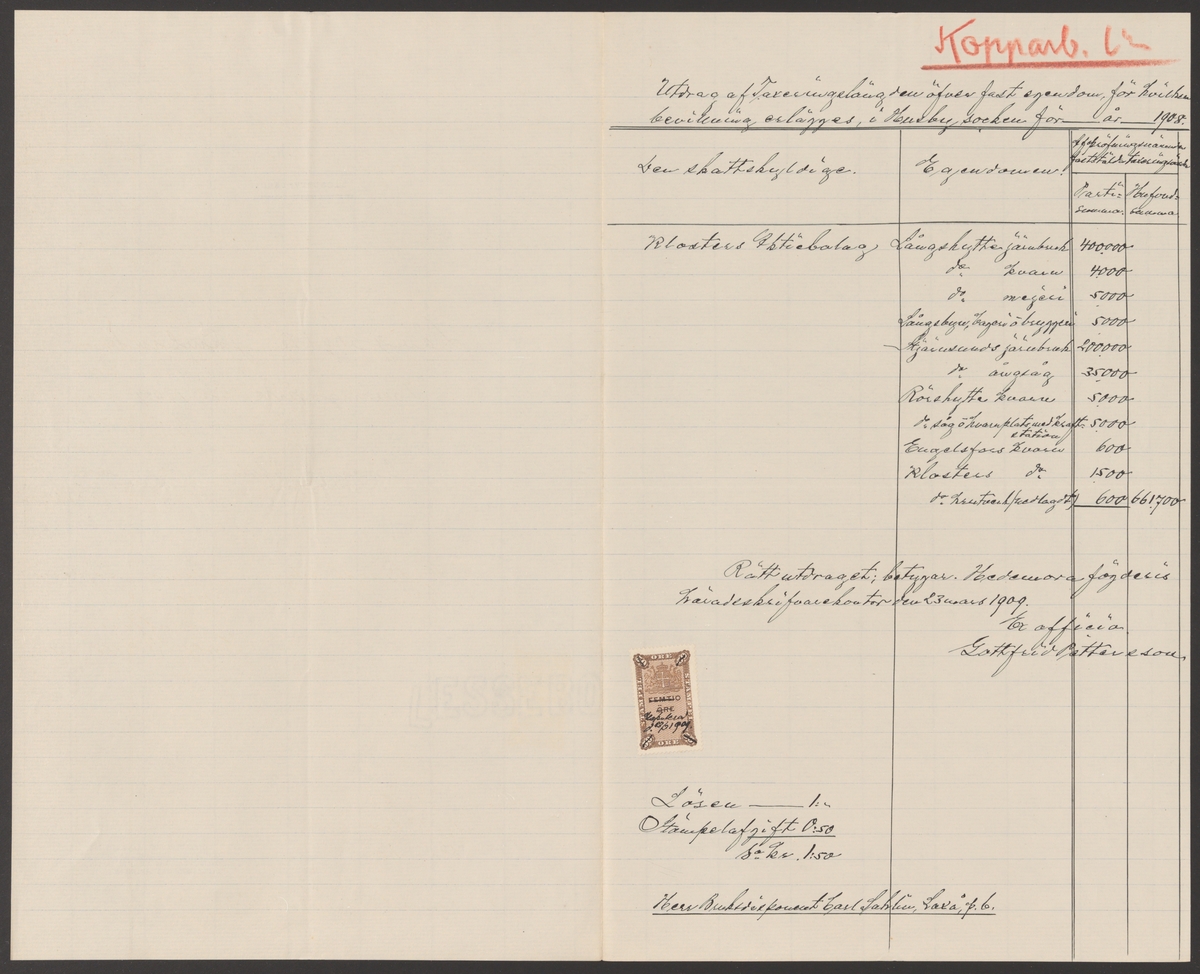 Kopparb. Ln
Utdrag af Taxeringslängden öfver fast egendom, för hvilken
bevillning erlägges, i Husby socken för — år — 1908.
Den skattskyldige. Egendomen.
fastställda taxeringsvärde
Parti-summa. Hufvud-summa
Klosters Aktiebolag Långshytte järnbruk 400,000
do kvarn 4000
do mejeri 5000
Långsbyn, bageri o bryggeri 5000
Stjärnsunds järnbruk 200,000
do ångsåg 35,000
Rörshytte kvarn 5,000
do såg o kvarnplats med kraft- 5,000
station
Engelsfors kvarn 600
Klosters do 1,500
do krutverk (nedlagdt) 600 661,700
Rätt utdraget; betygar. Hedemora fögderis
häradsskrifvarekontor den 23 mars 1909.
Ex officio.
Gottfrid Pettersson.
STÄMPEL ÖRE STÄMPEL
FEMTIO
ÖRE
1909.
ÖRE
Lösen — 1:-
Stämpelafgift 0:50
Sa kr. 1:50
Herr Bruksdisponent Carl Sahlin, Laxå, p. b.